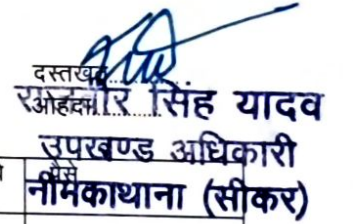 दस्तखत
ओहदा
सिंह यादव
उपखण्ड अधिकारी
पैसे
नीमकाथाना (सीकर)